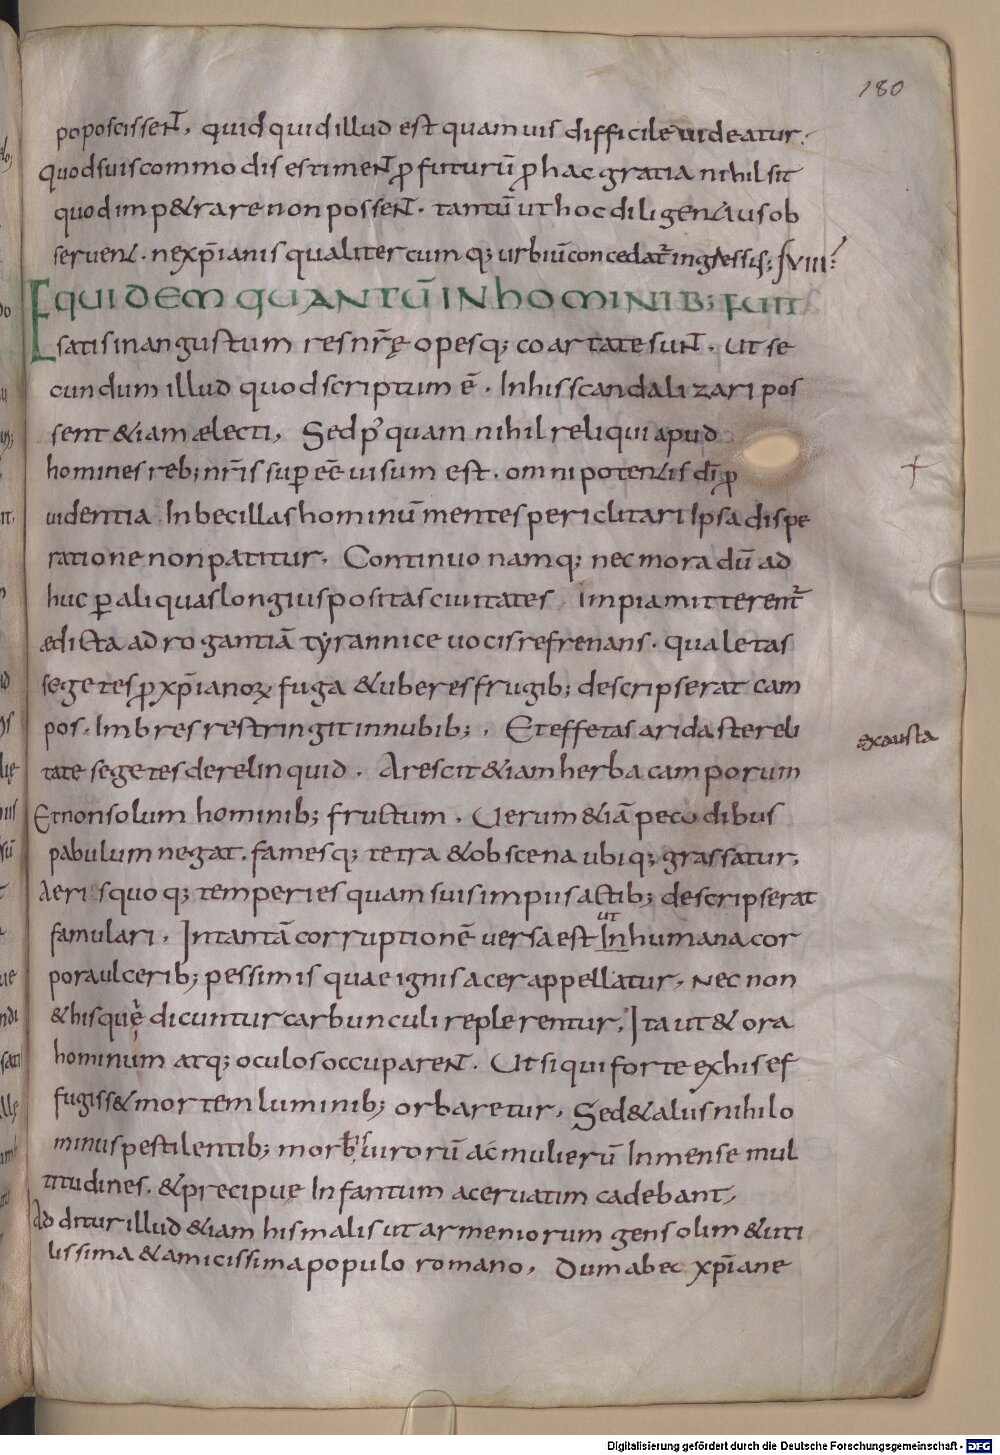 180
poposcissent, quidquid illud est quamuis difficile uideatur.
quod suis commodis estiment ꝓfuturū ꝓ hac gratia nihil sit
quod imp&rare non possent. tantū ut hoc diligentius ob
seruent. ne xp̄ianis qualitercumq; urbiū concedat᷑ ingressus; VIII
Equidem quantū in hominib; fuit
satis in angustum res nr̄ę opesq; coartate sunt. Ut se
cundum illud quod scriptum ē. In his scandalizari pos
sent &iam ælecti, Sed pꝰquam nihil reliqui apud
homines reb; nr̄is suꝑeē uisum est. omnipotentis dī ꝓ
uidentia Inbecillas hominū mentes periclitari Ipsa dispe
ratione non patitur, Continuo namq; nec mora dū ad
huc ꝑ aliquas longius positas ciuitates Impia mitterent᷑
ædicta adrogantiā tyrannice uocis refrenans. qua letas
segetes ꝓ xp̄ianoꝝ fuga & uberes frugib; descripserat cam
pos. Imbres restringit in nubib;. Et effetas arida stereli
exausta
tate segetes derelinquid. Arescit &iam herba camporum
Et non solum hominib; fructum. Uerum &iā pecodibus
pabulum negat. famesq; tetra & obscena ubiq; grassatur,
Aeris quoq; temperies quam suis impiis actib; descripserat
famulari. In tantā corruptionē uersa est ut In humana cor
pora ulcerib; pessimis quae ignis acer appellatur, nec non
& his quę dicuntur carbunculi replerentur, Ita ut & ora
hominum atq; oculos occuparent. Ut si qui forte ex his ef
fugiss& mortem luminib; orbaretur, Sed & alius nihilo
minus pestilentib; morbis uirorū ac mulierū Inmense mul
titudines. & precipue Infantum aceruatim cadebant,
Additur illud &iam his malis ut armeniorum gens olim & uti
lissima & amicissima populo romano, Dum abec xp̄iane
Digitalisierung gefördert durch die Deutsche Forschungsgemeinschaft - DFG